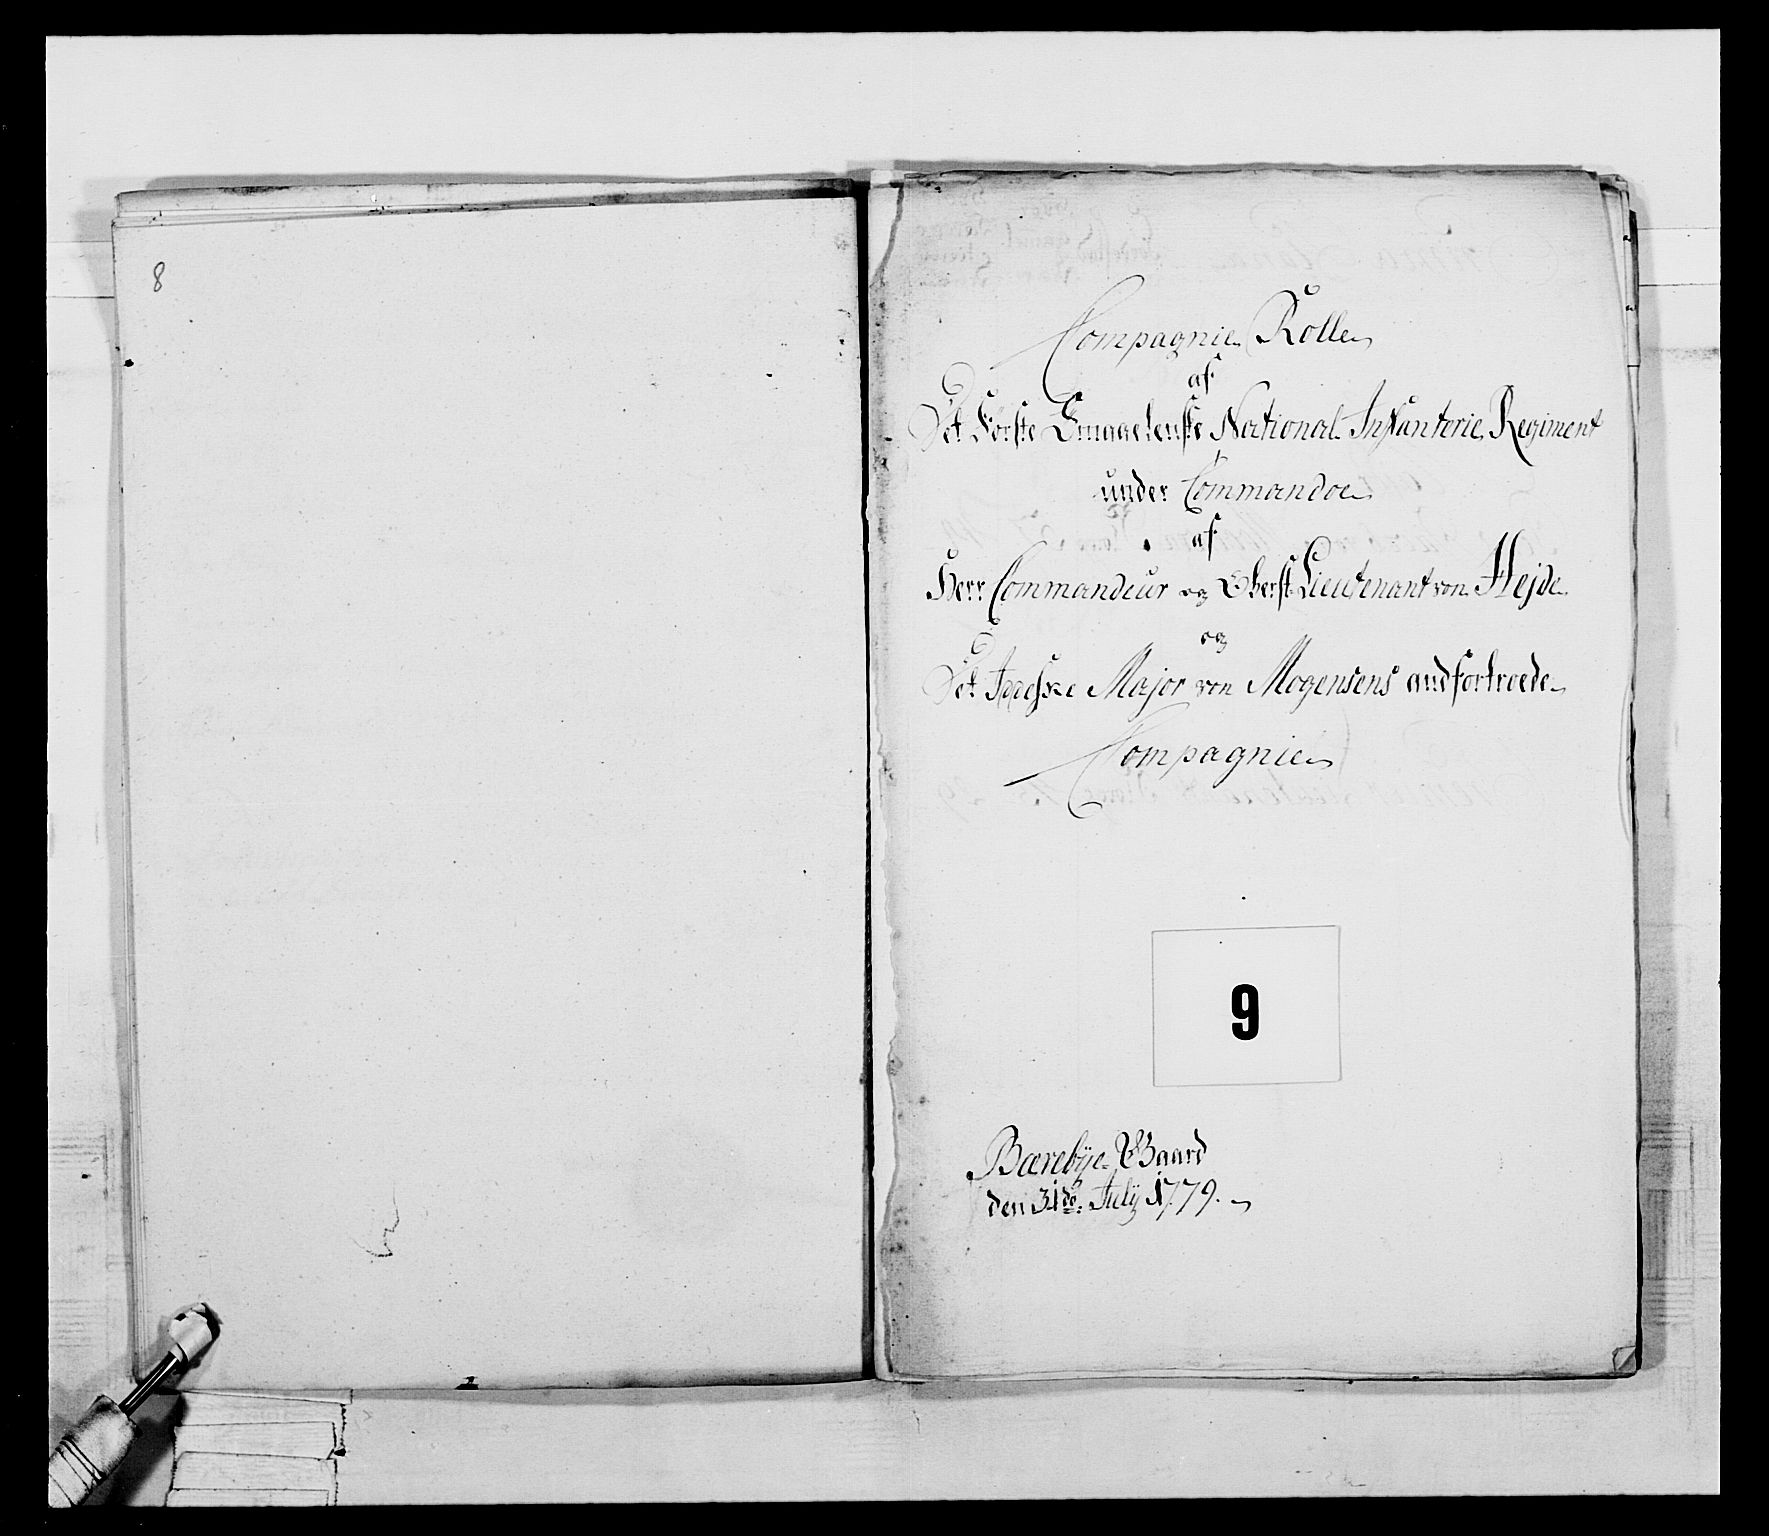 8
Compagnie Rolle
af
Det Første Smaaelenske National Infanterie Regiment
under Commandoe
af
Herr Commandeur og Oberst Lieutenant von Hejde
og
Det Iddeske Major von Mogensens andfortroede
Compagnie
9
Bærebÿe Gaard
den 31de: Julÿ 1779.